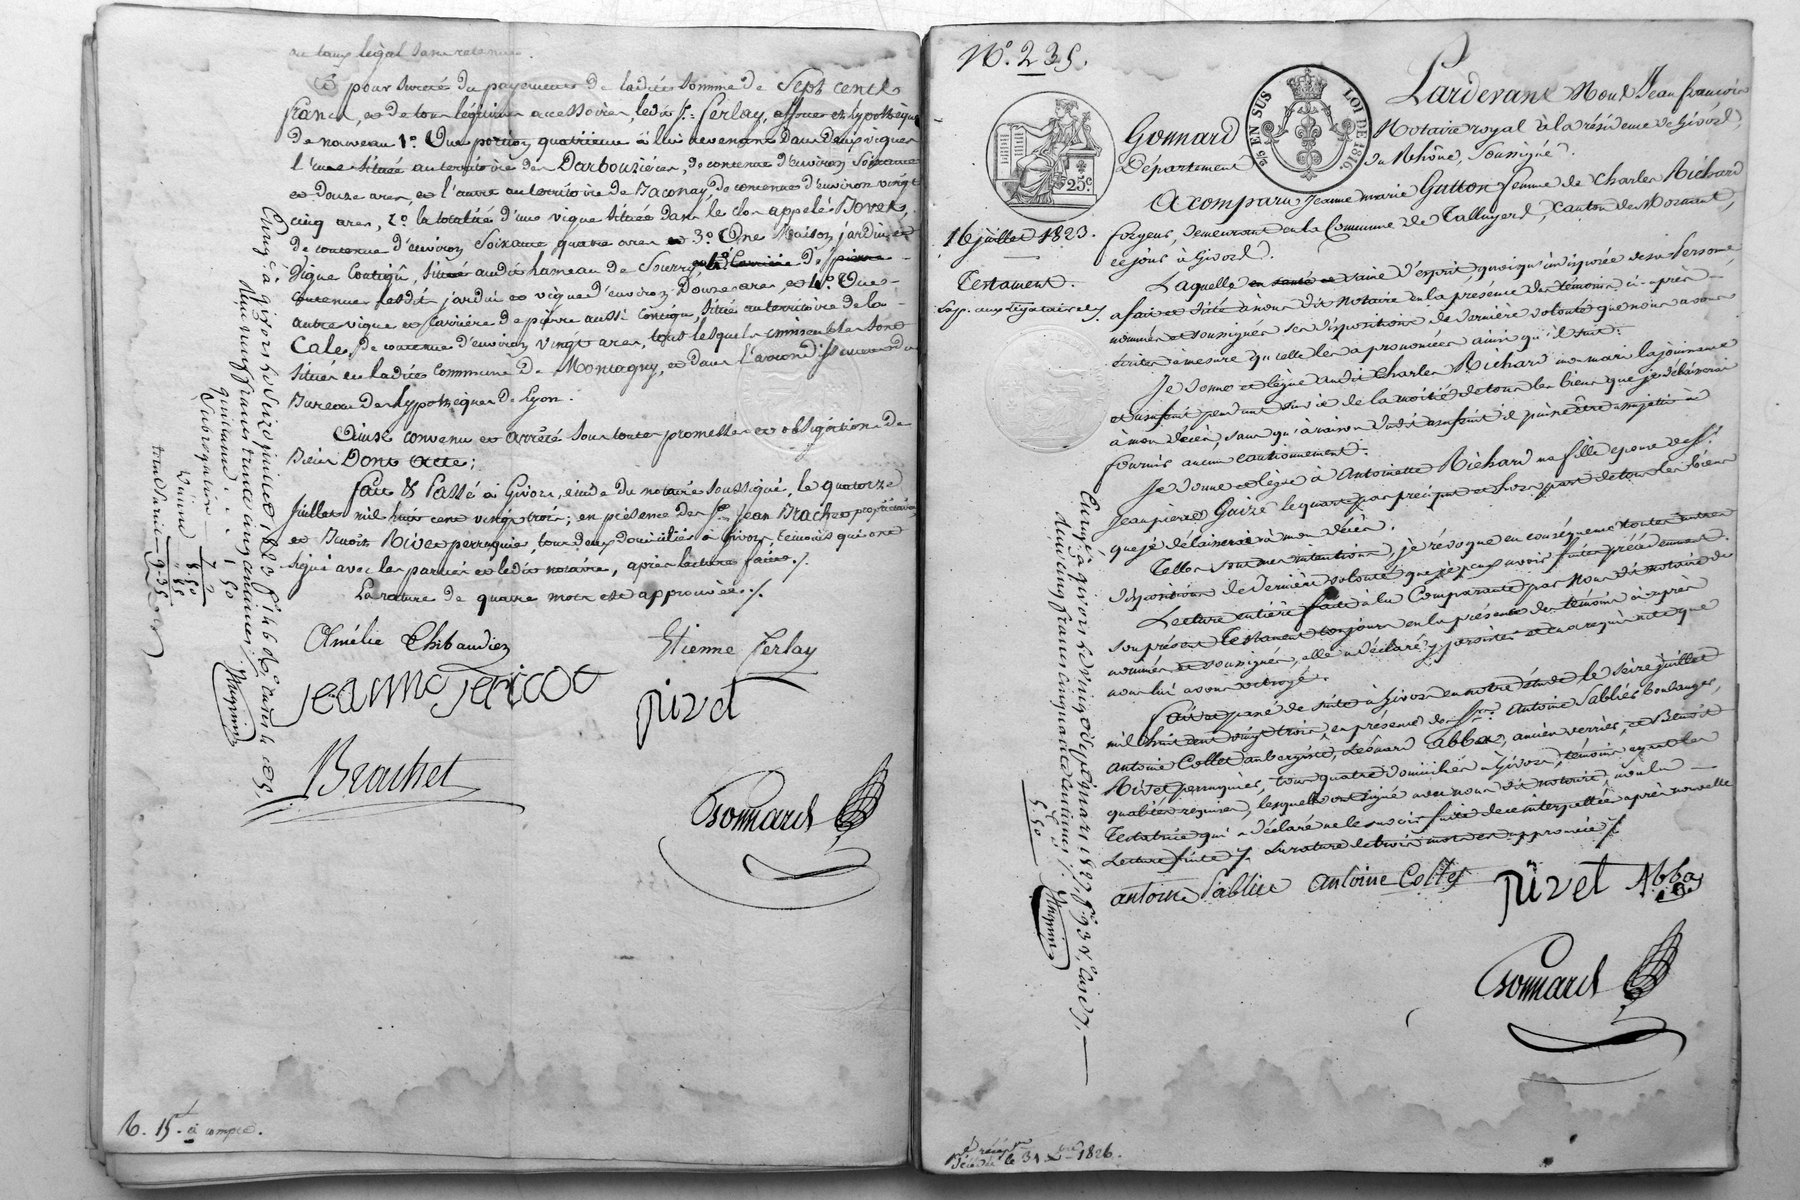 au taux légal sans retenue.
Et pour sureté du payement de ladite somme de Sept cents
francs, et de tous légitimes accessoires, ledit Sr. Ferlay, affecte et hypothèque
de nouveau 1°. Une portion quatrieme à lui revenant dans deux vignes
l'une située au territoire des Darbouzières, de contenue d'environ soixante
et douze ares, et l'autre au territoire de Baconay, de contenue d'environ vingt
cinq ares, 2°. la totalité d'une vigne située dans le clos appelé Bovet,
de contenue d'environ soixante quatre ares et 3°. Une Maison, jardin et
vigne contigus, situés audit hameau de Sourzy,
contenue lesdits jardin et vigne d'environ douze ares, et 4°. Une
autre vigne et carrière de pierre aussi contigue, située au territoire de la
Cale, de contenue d'environ vingt ares, tous lesquels immeubles sont
situés en ladite Commune de Montagny, et dans l'arrondissement du
Bureau des hypothèques de Lyon.
Ainsi convenu et arrêté sous toutes promesses et obligation de
Biens Dont Acte;
fait & Passé à Givors, étude du notaire soussigné, le quatorze
juillet mil huit cent vingt trois; en présence des Srs. Jean Brachet propriétaire,
et Benoît Rivet perruquier, tous deux domiciliés à Givors, témoins qui ont
signé avec les parties et ledit notaire, après lecture faite ./.
La rature de quatre mots est approuvée ./.
Amélie Thibaudier
Etienne Ferlay
Jeanne Jericot
Rivet
Brachet
Gonnard
Enreg. à givors le seize juillet 1823 fo. 46 Vo. cases 4 et 5.
Reçu neuf francs trente cinq centimes.
quittance 1 50
Subrogation 7
8 50
Dixième 85
9-35
R. 15. à compte.
N°. 235.
EN SUS
LOI DE 1816
25c.
16 juillet 1823.
Testament.
Pardevant Nous Jean françois
Gonnard Notaire royal à la résidence de Givors,
Département du Rhône, soussigné.
A comparu Jeanne marie Gutton femme de Charles Richard
forgeur, demeurant en la Commune de Talluyers, Canton de Mornant,
ce jour à Givors.
Laquelle en santé et saine d'esprit, quoiqu'indisposée de sa Personne,
a fait et dicté à nous dit notaire en la présence des témoins ci-après
nommés et soussignés ses dispositions de dernière volonté que nous avons
écrites à mesure qu'elle les a prononcées ainsi qu'il suit:
Je donne et lègue audit Charles Richard mon mari la jouissance
et usufruit pendant sa vie de la moitié de tous les biens que je délaisserai
à mon décès, sans qu'à raison dudit usufruit il puisse être assujetti à
fournir aucun cautionnement.
Je donne et lègue à Antoinette Richard ma fille épouse de Sr.
Jean pierre Gaizé le quart par préciput et hors part de tous les biens
que je délaisserai à mon décès.
Telles sont mes intentions, je révoque en conséquence toutes autres
dispositions de dernière volonté que je peux avoir faites précédemment.
Lecture entière faite à la Comparante par Nous dit notaire de
son présent Testament toujours en la présence des témoins ci-après
nommés et soussignés, elle a déclaré y persister et en a requis acte que
nous lui avons octroyé.
Fait et passé de suite à Givors en notre étude le seize juillet
mil huit cent vingt trois, en présence de Srs. Antoine Sablier boulanger,
Antoine Collet aubergiste, Léonard Abba, ancien verrier, et Benoît
Rivet perruquier, tous quatre domiciliés à Givors, témoins ayant les
qualités requises, lesquels ont signé avec nous dit notaire, non la
Testatrice qui a déclaré ne le savoir faire de ce interpellée après nouvelle
Lecture faite ./. La rature de trois mots est approuvée ./.
antoine Sablier antoine Collet Rivet Abba
Gonnard
Reçu cinq francs cinquante centimes
5.50
le 31 1826.